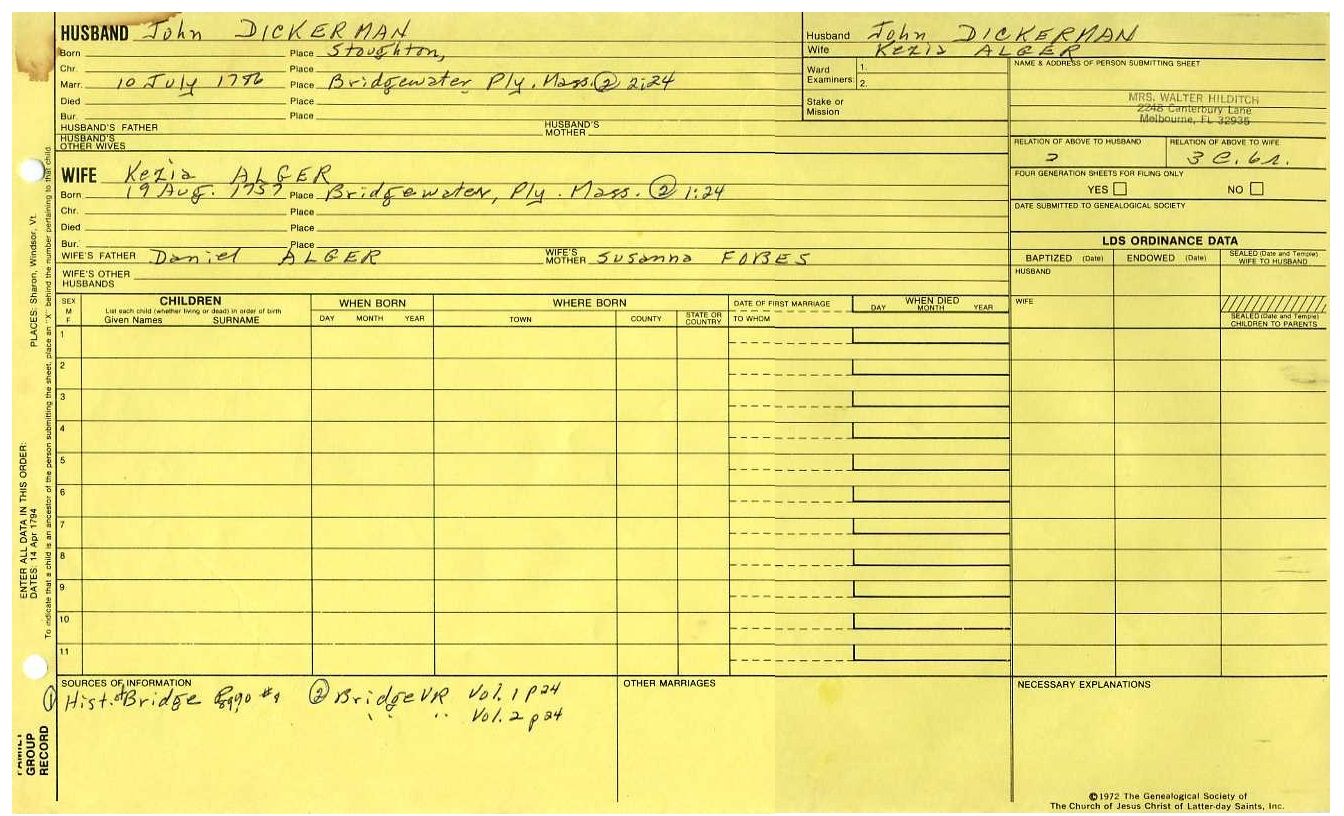 HUSBAND John DICKERMAN
Born Place Stoughton,
Chr. Place
Marr. 10 July 1776 Place Bridgewater Ply. Mass. ② 2:24
Died Place
Bur. Place
HUSBAND'S FATHER HUSBAND'S MOTHER
HUSBAND'S OTHER WIVES
WIFE Kezia ALGER
Born 19 Aug. 1757 Place Bridgewater, Ply. Mass. ② 1:24
Chr. Place
Died Place
Bur. Place
WIFE'S FATHER Daniel ALGER WIFE'S MOTHER Susanna FOBES
WIFE'S OTHER HUSBANDS
Husband John DICKERMAN
Wife Kezia ALGER
Ward Examiners: 1.
2.
Stake or Mission
NAME & ADDRESS OF PERSON SUBMITTING SHEET
MRS. WALTER HILDITCH
2248 Canterbury Lane
Melbourne, FL 32935
RELATION OF ABOVE TO HUSBAND RELATION OF ABOVE TO WIFE
3 C. 6r.
FOUR GENERATION SHEETS FOR FILING ONLY
YES NO
DATE SUBMITTED TO GENEALOGICAL SOCIETY
LDS ORDINANCE DATA
BAPTIZED (Date) ENDOWED (Date) SEALED (Date and Temple) WIFE TO HUSBAND
HUSBAND
WIFE
SEALED (Date and Temple) CHILDREN TO PARENTS
SEX M F
CHILDREN
List each child (whether living or dead) in order of birth
Given Names SURNAME
WHEN BORN
DAY MONTH YEAR
WHERE BORN
TOWN COUNTY STATE OR COUNTRY
DATE OF FIRST MARRIAGE
TO WHOM
WHEN DIED
DAY MONTH YEAR
1
2
3
4
5
6
7
8
9
10
11
SOURCES OF INFORMATION
① Hist. of Bridge #9 ② Bridge VR Vol. 1 p24
" " Vol. 2 p24
OTHER MARRIAGES
NECESSARY EXPLANATIONS
©1972 The Genealogical Society of
The Church of Jesus Christ of Latter-day Saints, Inc.
ENTER ALL DATA IN THIS ORDER:
DATES: 14 Apr 1794 PLACES: Sharon, Windsor, Vt.
To indicate that a child is an ancestor of the person submitting the sheet, place an "X" behind the number pertaining to that child.
FAMILY GROUP RECORD